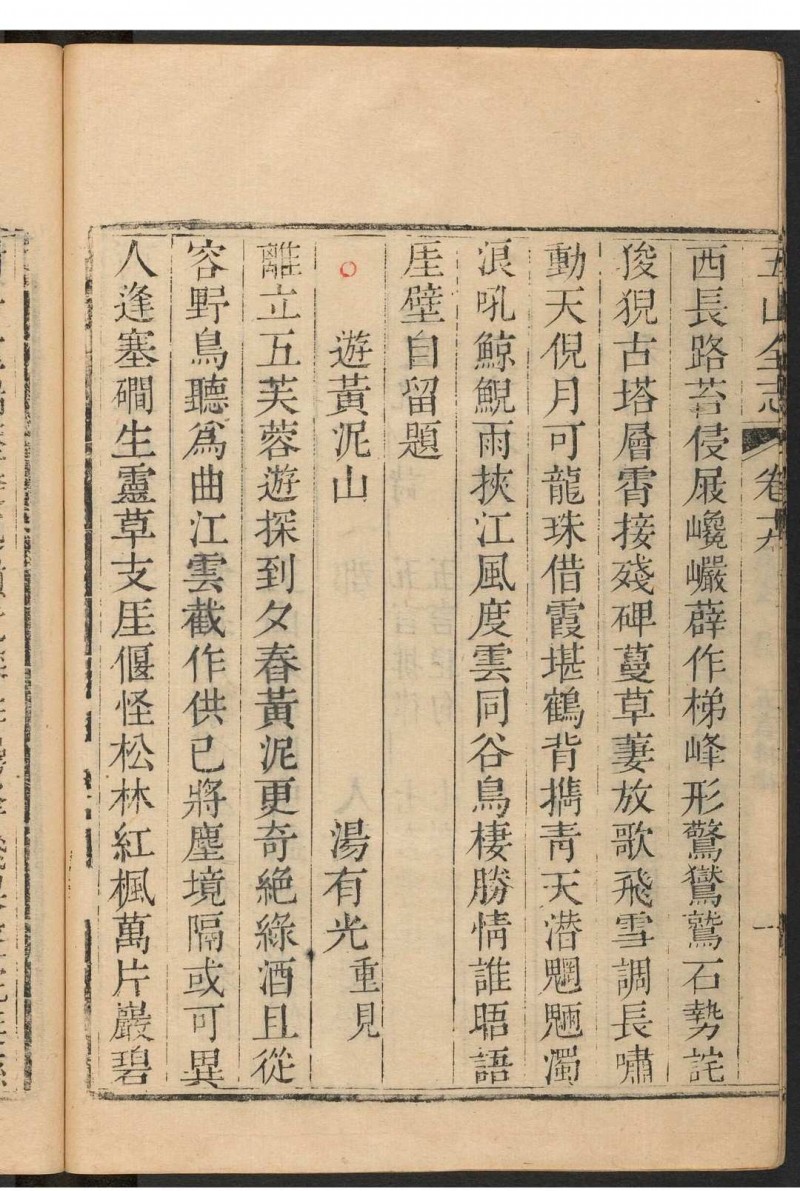 五山全志 卷十六 一
西長路苔侵屐巉巗薜作梯峰形驚鸑鷟石勢詫
狻猊古塔層霄接殘碑蔓草萋放歌飛雪調長嘯
動天倪月可龍珠借霞堪鶴背攜青天潛魍魎濁
浪吼鯨鯢雨挾江風度雲同谷鳥棲勝情誰晤語
厓壁自留題
遊黃泥山 湯有光重見
離立五芙蓉遊探到夕舂黃泥更奇絶綠酒且從
容野鳥聽爲曲江雲截作供已將塵境隔或可異
人逢塞磵生靈草支厓偃怪松林紅楓萬片巖碧